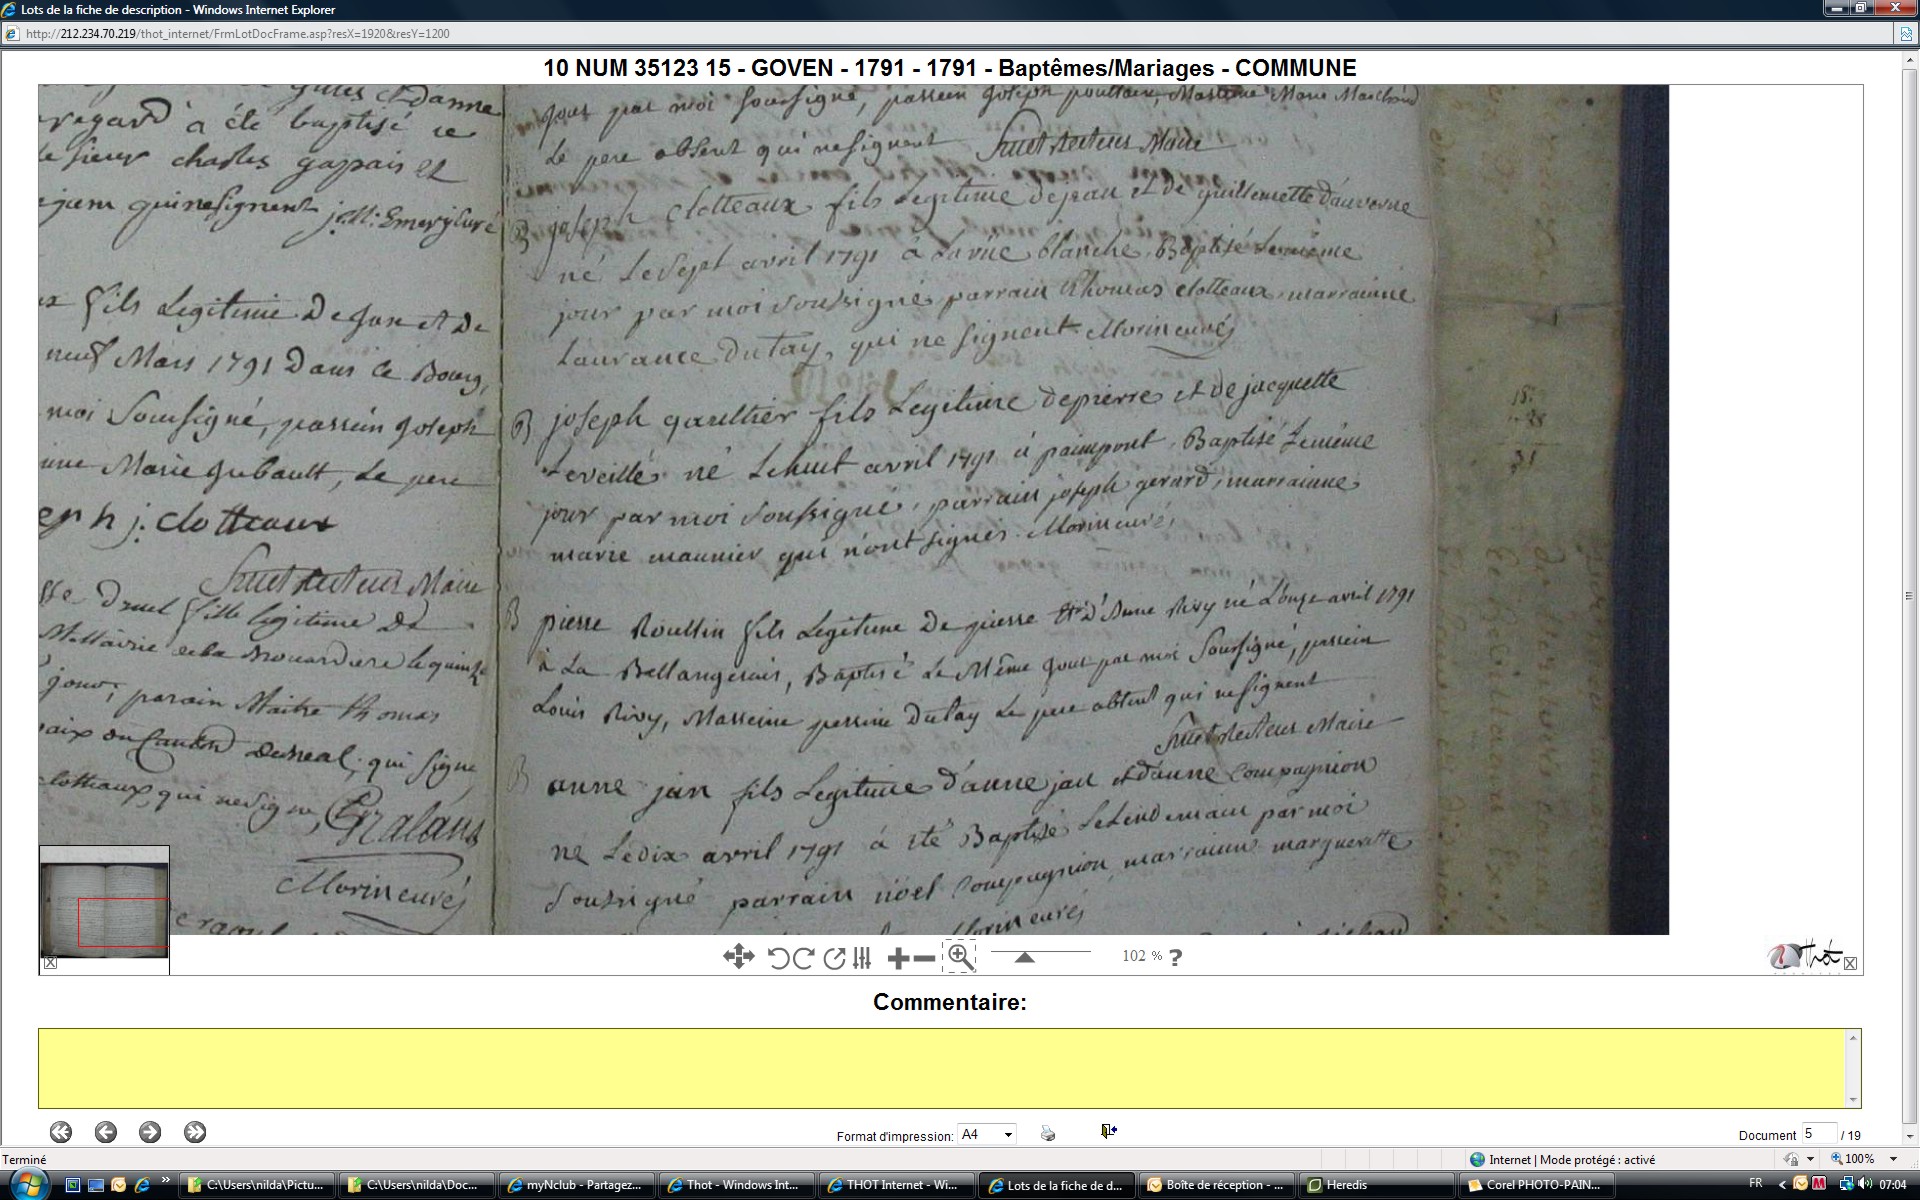 Lots de la fiche de description - Windows Internet Explorer
http://212.234.70.219/thot_internet/FrmLotDocFrame.asp?resX=1920&resY=1200
10 NUM 35123 15 - GOVEN - 1791 - 1791 - Baptêmes/Mariages - COMMUNE
regard à été baptisé ce
le sieur charles gappais et
qui nesignent j. M. Emery Curé
fils Legitime De Jan et De
neuf Mars 1791 Dans Le Bourg,
moi Soussigné, parrein Joseph
Marie Gubault, Le pere
j. clotteaux
recteur Maire
Druel fille legitime De
le quinze
jour, parain Maitre thomas
qui signe
clotteaux, qui nesigne,
Morin curé
jour par moi Soussigné, parrein Joseph Marie Marchand
Le pere absent qui nesignent recteur Maire
B joseph Clotteaux fils Legitime de jean et de guillemette d'auvergne
né Le Sept avril 1791 à La rüe blanche Baptisé Lemême
jour par moi Soussigné parrain thomas clotteaux marrainne
Laurance Dutay, qui ne signent Morin curé
B joseph gaultier fils Legitime de pierre et de jacquette
Leveillé né Lehuit avril 1791 à paimpont Baptisé Lemême
jour par moi Soussigné, parrain joseph gerard, marrainne
marie maunier qui n'ont signés. Morin curé
B pierre Roullin fils Legitime De pierre Et d'Anne Rivy né L'onze avril 1791
à La Bellangerais, Baptisé Le Même Jour par moi Soussigné, parrein
Louis Rivy, Marreine perrine Dutay Le pere absent qui nesignent
recteur Maire
B anne jan fils Legitime d'anne jan et d'anne Compagnion
né Ledix avril 1791 à été Baptisé Lelendemain par moi
Soussigné parrain noel Compagnion, marrainne margueritte
Morin curé
102 % ?
Thot
Commentaire:
Format d'impression: A4
Document 5 / 19
Terminé
Internet | Mode protégé : activé
100%
C:\Users\nilda\Pictu...
C:\Users\nilda\Doc...
myNclub - Partagez...
Thot - Windows Int...
THOT Internet - Wi...
Lots de la fiche de d...
Boîte de réception - ...
Heredis
Corel PHOTO-PAIN...
FR
07:04